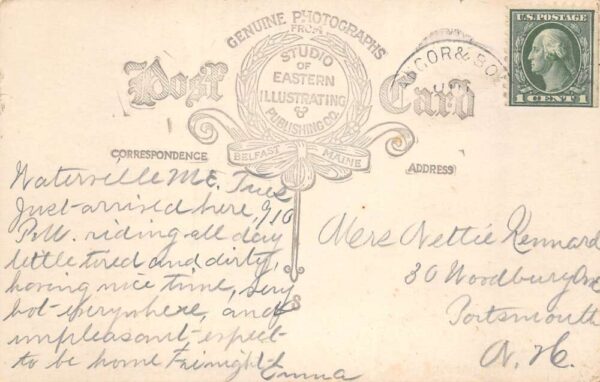 GENUINE PHOTOGRAPHS
FROM
STUDIO
OF
EASTERN
ILLUSTRATING
&
PUBLISHING CO.
BELFAST MAINE
Post Card
CORRESPONDENCE
ADDRESS
U.S. POSTAGE
1 CENT 1
GOR & BO
Waterville Me. Tues
Just arrived here 9/10
P.M. riding all day
little tired and dirty,
having nice time, very
hot everywhere, and
unpleasant expect
to be home Fri night
Emma
Mrs Nettie Rennard
30 Woodbury Ave
Portsmouth
N. H.